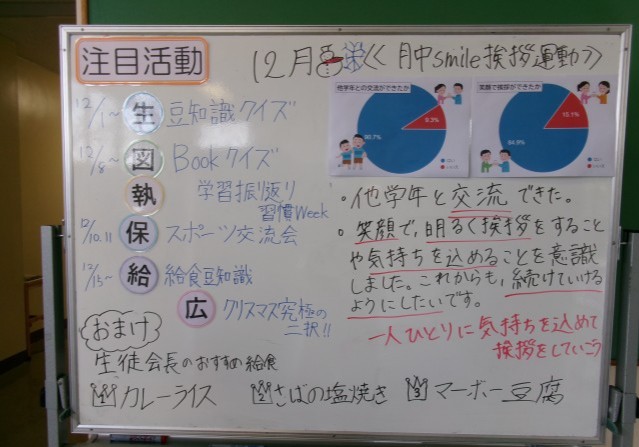 注目活動
12月 << 月中smile挨拶運動>>
12/1~ 生 豆知識クイズ
12/8~ 図 Bookクイズ
執 学習振り返り
習慣Week
12/10.11 保 スポーツ交流会
12/15~ 給 給食豆知識
広 クリスマス究極の
二択!!
おまけ
生徒会長のおすすめ給食
1 カレーライス 2 さばの塩焼き 3 マーボー豆腐
他学年との交流ができたか
9.3%
90.7%
笑顔で挨拶ができたか
15.1%
84.9%
・他学年と交流できた。
・笑顔で、明るく挨拶をすること
や気持ちを込めることを意識
しました。これからも、続けていける
ようにしたいです。
一人ひとりに気持ちを込めて
挨拶をしていこう